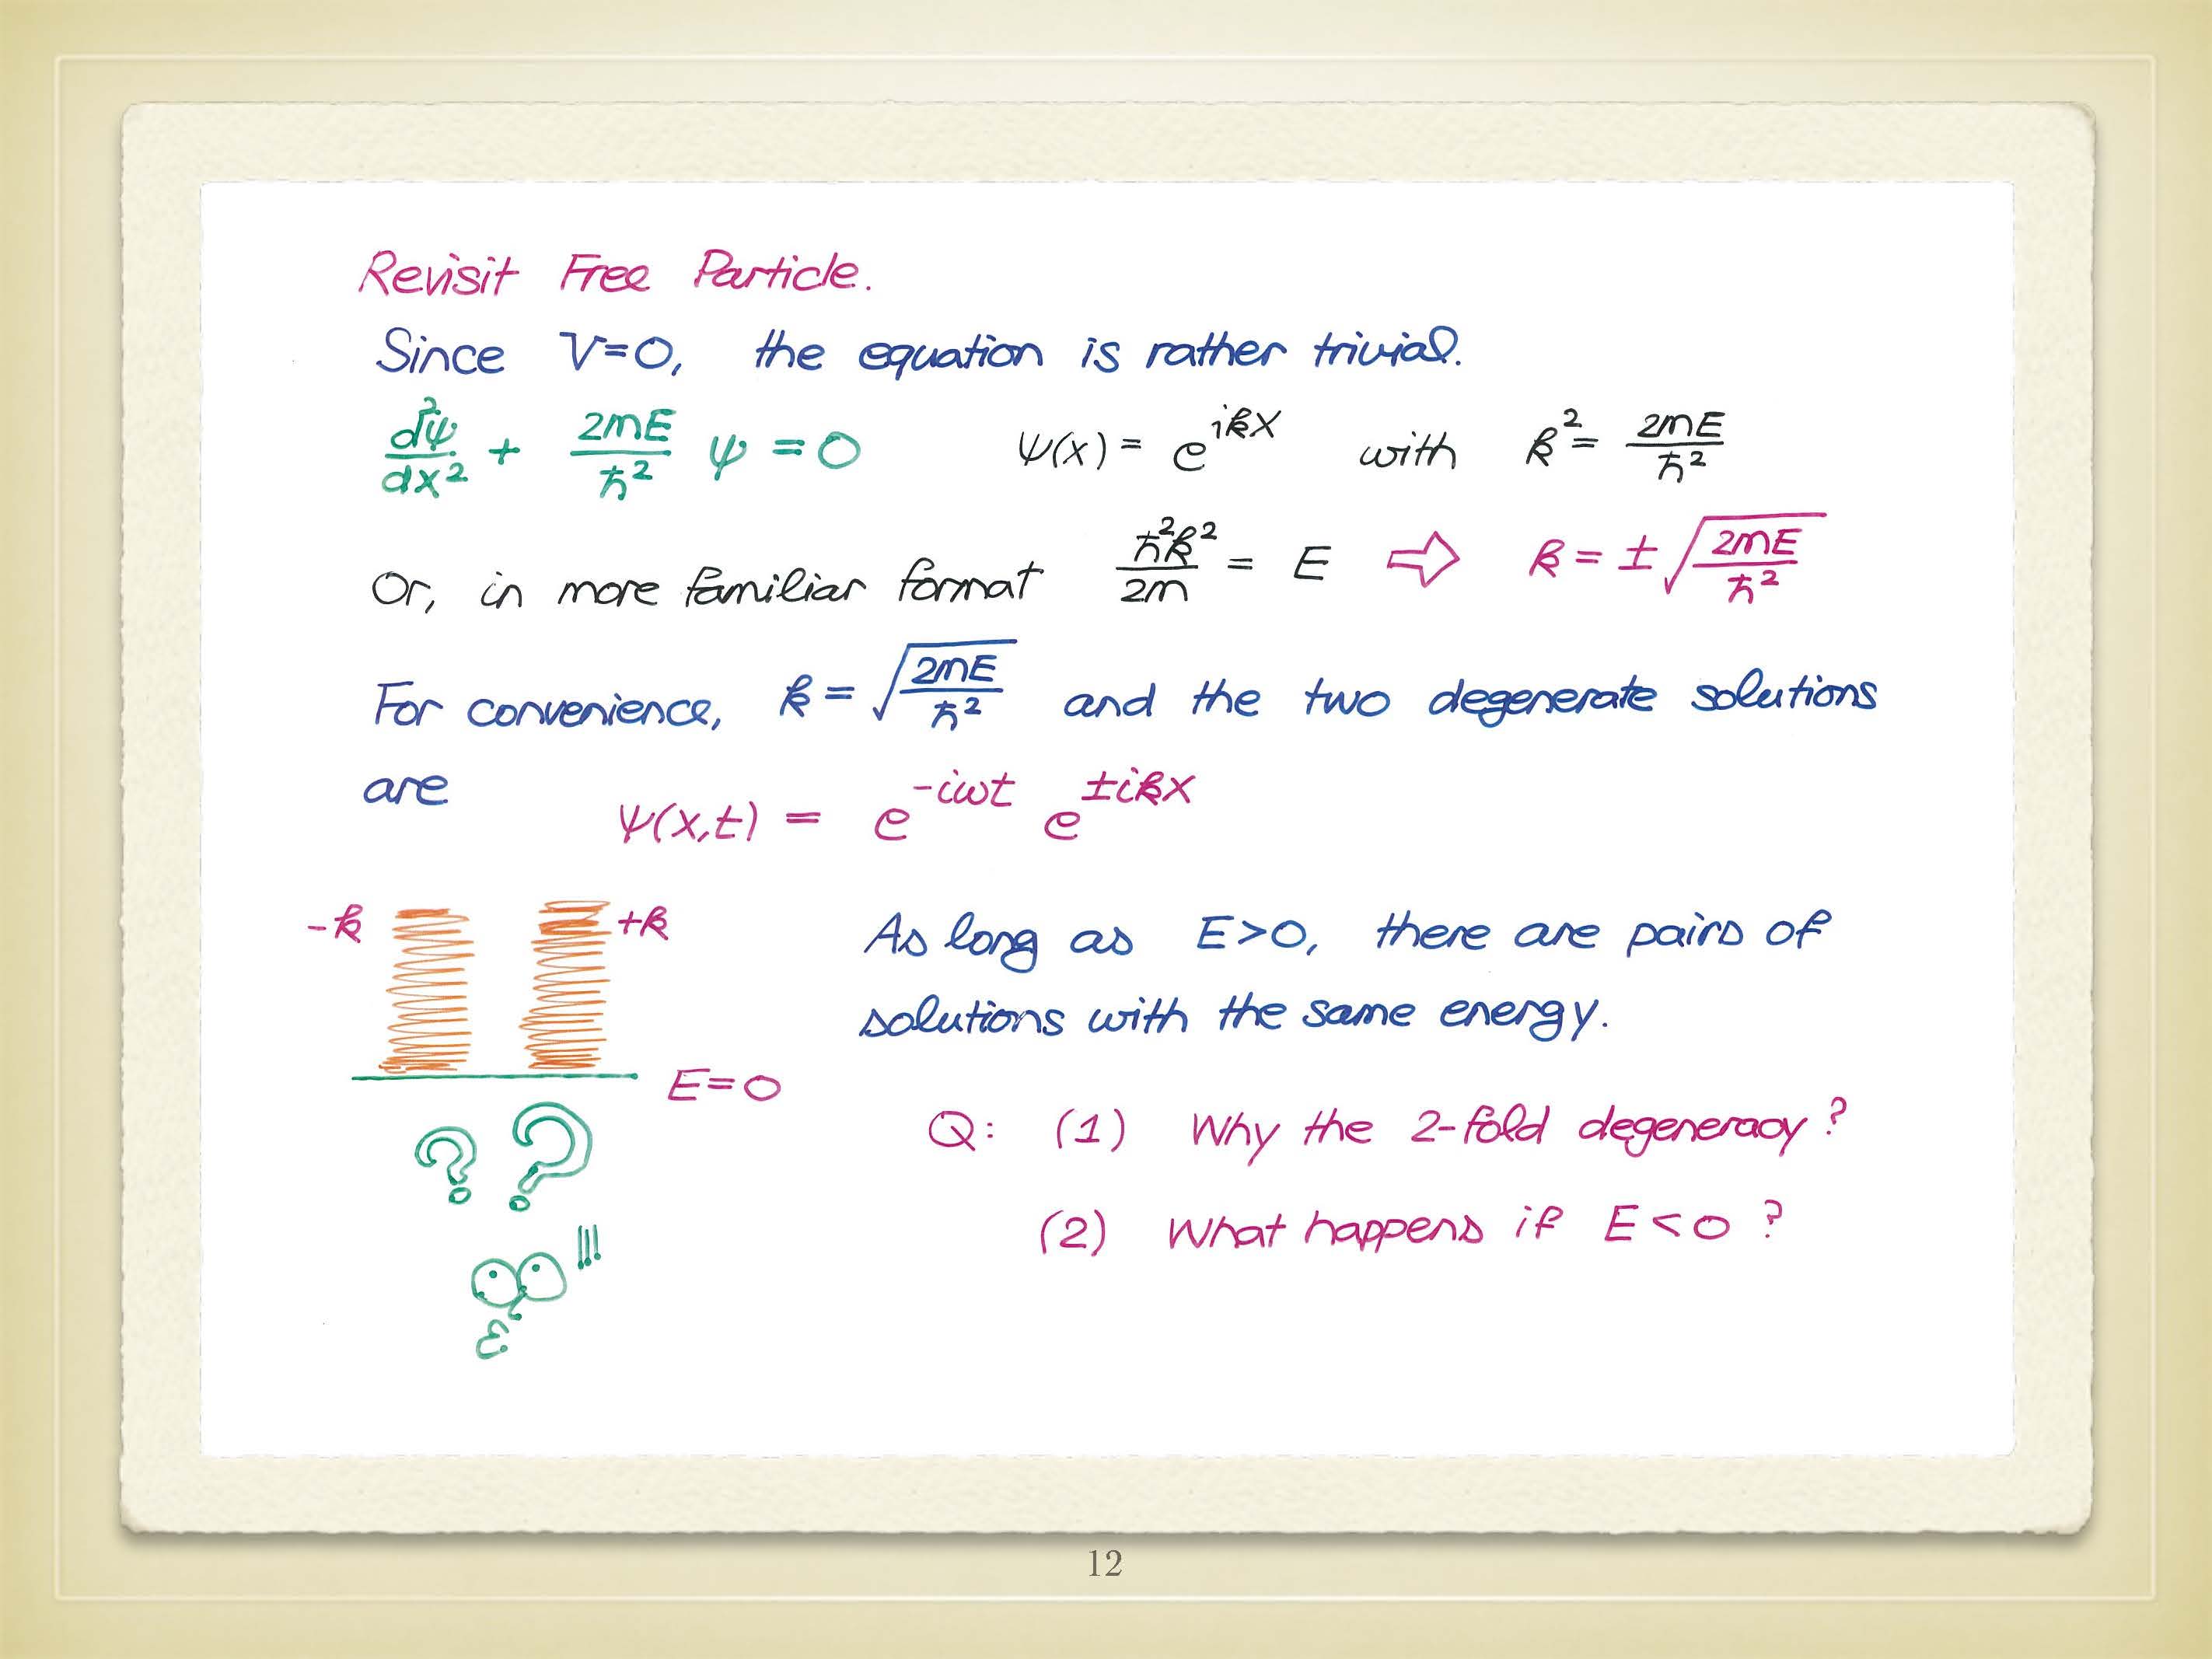 Revisit Free Particle.
Since V=0, the equation is rather trivial.
d²ψ/dx² + 2mE/ħ² ψ = 0 ψ(x) = e^{ikx} with k² = 2mE/ħ²
Or, in more familiar format ħ²k²/2m = E ⇨ k = ±√(2mE/ħ²)
For convenience, k = √(2mE/ħ²) and the two degenerate solutions
are ψ(x,t) = e^{-iωt} e^{±ikx}
-k +k
As long as E>0, there are pairs of
solutions with the same energy.
E=0
? ?
!!!
Q: (1) Why the 2-fold degeneracy?
(2) What happens if E<0?
12